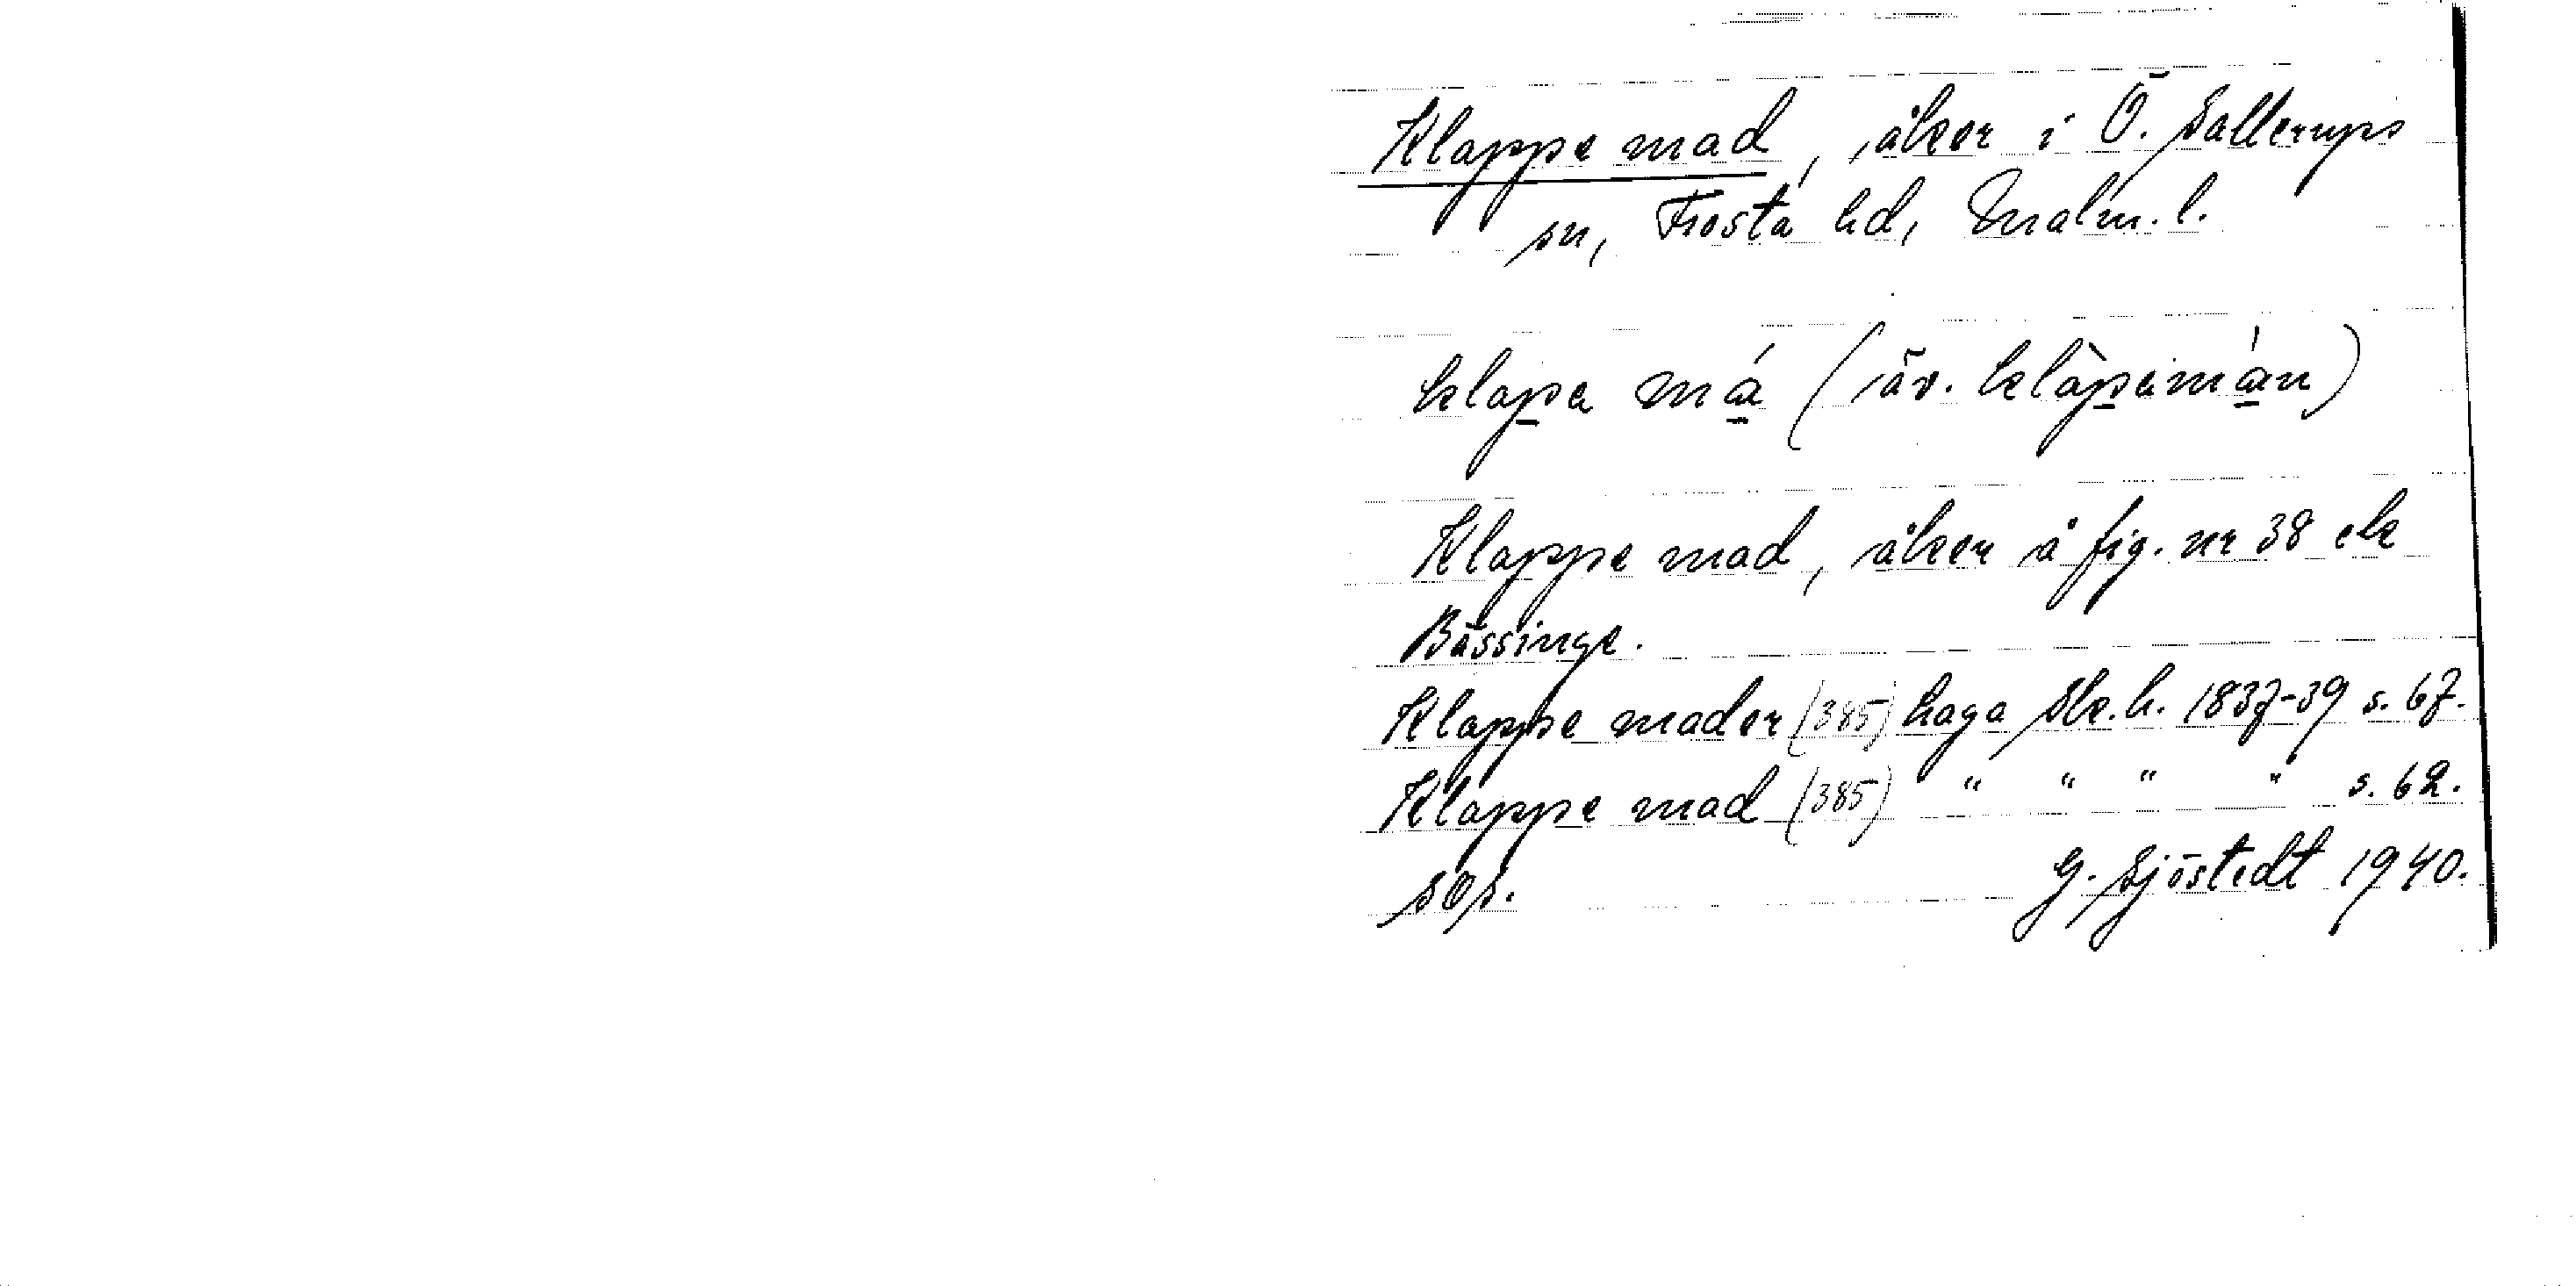 Klappe mad, åker i Ö. Sallerups
sn, Frosta hd, Malm. l.
klapa má (äv. klàpamán)
Klappe mad, åker å fig. nr 38 ek
Bässinge.
Klappe mader (385) haga Sk.h. 1837-39 s. 67.
Klappe mad (385) " " " " s. 62.
SOS. G. Sjöstedt 1940.